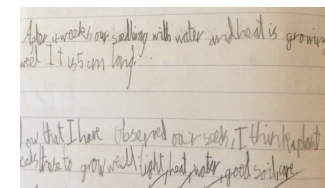 After 4 weeks our seedling with water and heat is growing
well It is 5 cm long.
ow that I have observed our seeds, I think a plant
eeds these to grow well light, heat, water, good soil, care